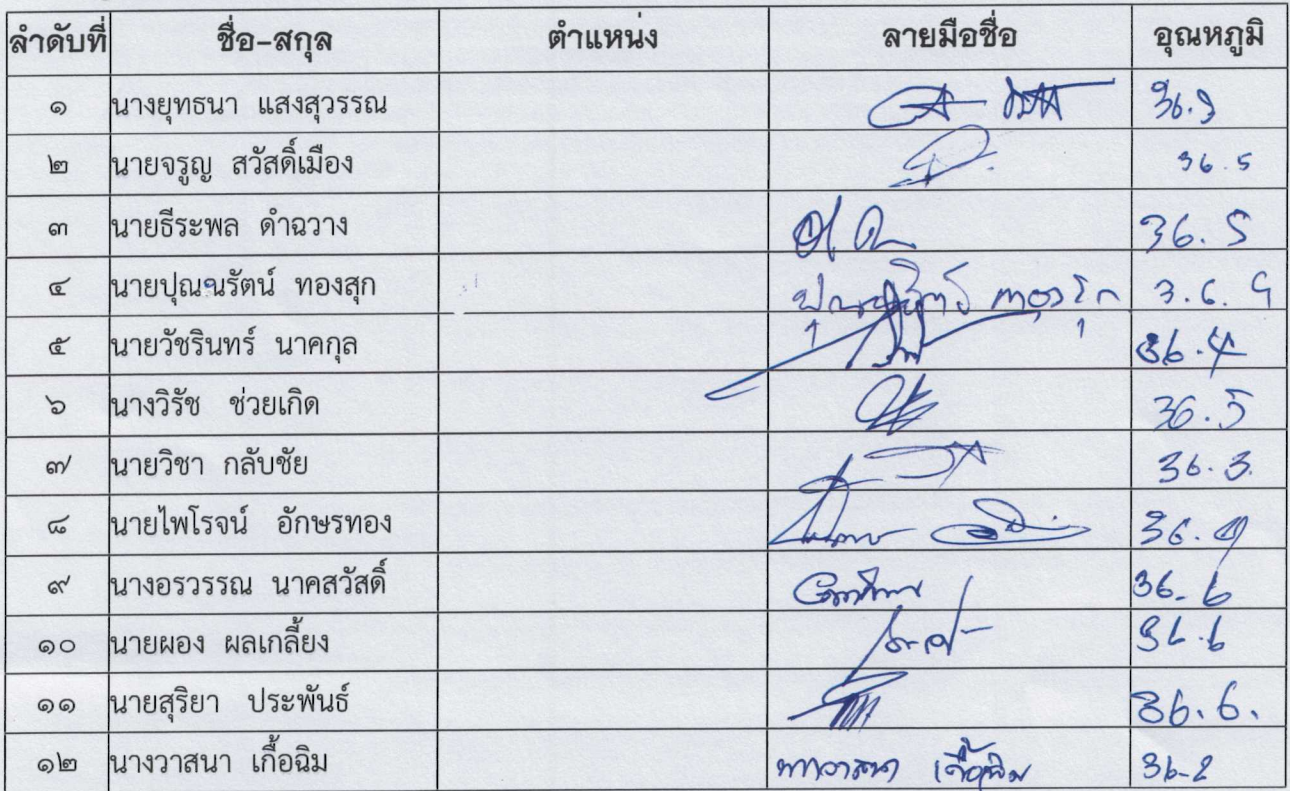 ลำดับที่ ชื่อ-สกุล ตำแหน่ง ลายมือชื่อ อุณหภูมิ
๑ นางยุทธนา แสงสุวรรณ 36.3
๒ นายจรูญ สวัสดิ์เมือง 36.5
๓ นายธีระพล ดำฉวาง 36.5
๔ นายปุณนรัตน์ ทองสุก 3.6.9
๕ นายวัชรินทร์ นาคกุล 36.4
๖ นางวิรัช ช่วยเกิด 36.5
๗ นายวิชา กลับชัย 36.3
๘ นายไพโรจน์ อักษรทอง
๙ นางอรวรรณ นาคสวัสดิ์ 36-6
๑๐ นายผอง ผลเกลี้ยง 36.6
๑๑ นายสุริยา ประพันธ์ 36.6.
๑๒ นางวาสนา เกื้อฉิม นางวาสนา เกื้อฉิม 36-2